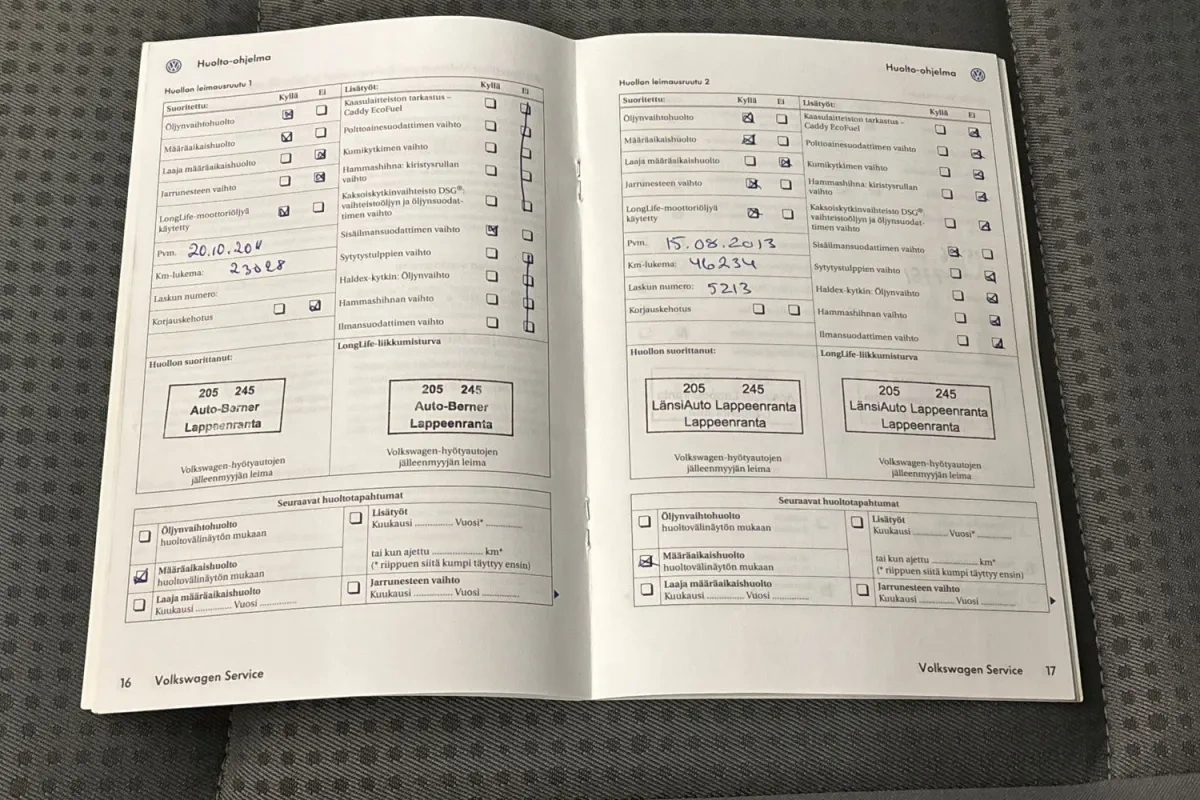 Huolto-ohjelma
Huollon leimausruutu 1
Suoritettu: Kyllä Ei
Öljynvaihtohuolto
Määräaikaishuolto
Laaja määräaikaishuolto
Jarrunesteen vaihto
LongLife-moottoriöljyä
käytetty
Pvm. 20.10.2011
Km-lukema: 23028
Laskun numero:
Korjauskehotus
Lisätyöt: Kyllä Ei
Kaasulaitteiston tarkastus –
Caddy EcoFuel
Polttoainesuodattimen vaihto
Kumikytkimen vaihto
Hammashihna: kiristysrullan
vaihto
Kaksoiskytkinvaihteisto DSG®:
vaihteistoöljyn ja öljynsuodat-
timen vaihto
Sisäilmansuodattimen vaihto
Sytytystulppien vaihto
Haldex-kytkin: Öljynvaihto
Hammashihnan vaihto
Ilmansuodattimen vaihto
Huollon suorittanut:
205 245
Auto-Berner
Lappeenranta
Volkswagen-hyötyautojen
jälleenmyyjän leima
LongLife-liikkumisturva
205 245
Auto-Berner
Lappeenranta
Volkswagen-hyötyautojen
jälleenmyyjän leima
Seuraavat huoltotapahtumat
Öljynvaihtohuolto
huoltovälinäytön mukaan
Määräaikaishuolto
huoltovälinäytön mukaan
Laaja määräaikaishuolto
Kuukausi ............. Vuosi .............
Lisätyöt
Kuukausi ............. Vuosi* .............
tai kun ajettu ................. km*
(* riippuen siitä kumpi täyttyy ensin)
Jarrunesteen vaihto
Kuukausi ............. Vuosi .............
16 Volkswagen Service
Huolto-ohjelma
Huollon leimausruutu 2
Suoritettu: Kyllä Ei
Öljynvaihtohuolto
Määräaikaishuolto
Laaja määräaikaishuolto
Jarrunesteen vaihto
LongLife-moottoriöljyä
käytetty
Pvm. 15.08.2013
Km-lukema: 46234
Laskun numero: 5213
Korjauskehotus
Lisätyöt: Kyllä Ei
Kaasulaitteiston tarkastus –
Caddy EcoFuel
Polttoainesuodattimen vaihto
Kumikytkimen vaihto
Hammashihna: kiristysrullan
vaihto
Kaksoiskytkinvaihteisto DSG®:
vaihteistoöljyn ja öljynsuodat-
timen vaihto
Sisäilmansuodattimen vaihto
Sytytystulppien vaihto
Haldex-kytkin: Öljynvaihto
Hammashihnan vaihto
Ilmansuodattimen vaihto
Huollon suorittanut:
205 245
LänsiAuto Lappeenranta
Lappeenranta
Volkswagen-hyötyautojen
jälleenmyyjän leima
LongLife-liikkumisturva
205 245
LänsiAuto Lappeenranta
Lappeenranta
Volkswagen-hyötyautojen
jälleenmyyjän leima
Seuraavat huoltotapahtumat
Öljynvaihtohuolto
huoltovälinäytön mukaan
Määräaikaishuolto
huoltovälinäytön mukaan
Laaja määräaikaishuolto
Kuukausi ............. Vuosi .............
Lisätyöt
Kuukausi ............. Vuosi* .............
tai kun ajettu ................. km*
(* riippuen siitä kumpi täyttyy ensin)
Jarrunesteen vaihto
Kuukausi ............. Vuosi .............
Volkswagen Service 17